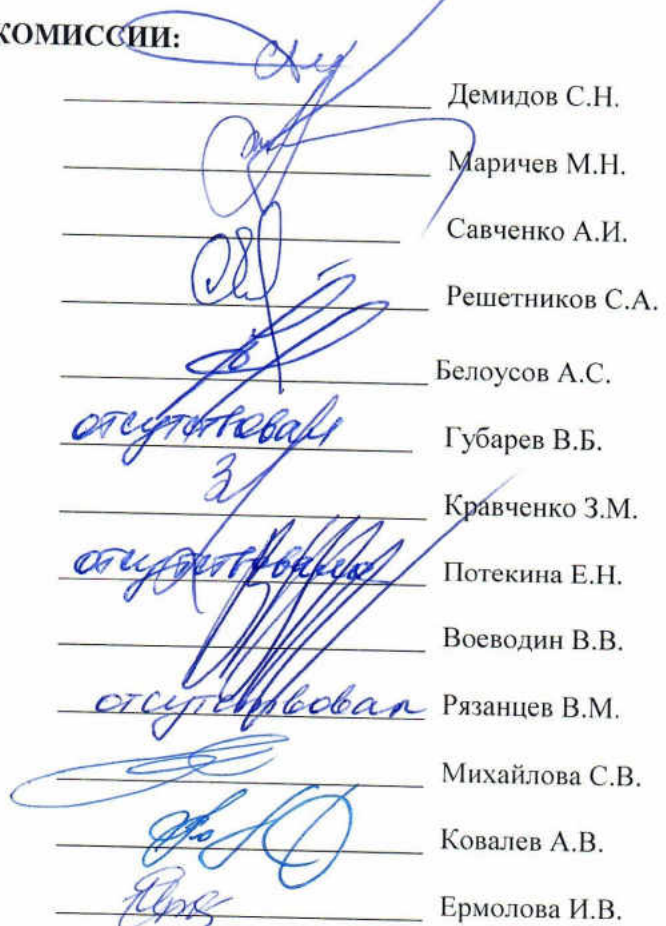 КОМИССИИ:
Демидов С.Н.
Маричев М.Н.
Савченко А.И.
Решетников С.А.
Белоусов А.С.
отсутствовал Губарев В.Б.
Кравченко З.М.
отсутствовала Потекина Е.Н.
Воеводин В.В.
отсутствовал Рязанцев В.М.
Михайлова С.В.
Ковалев А.В.
Ермолова И.В.